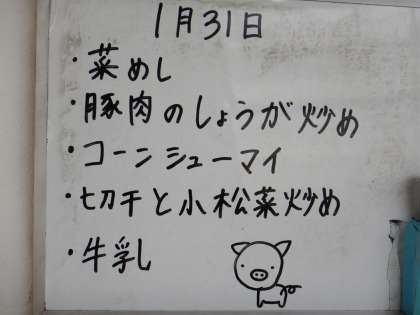 1月31日
・菜めし
・豚肉のしょうが炒め
・コーンシューマイ
・切干と小松菜炒め
・牛乳